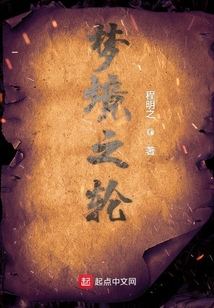 梦境之轮
程明之
著
起点中文网